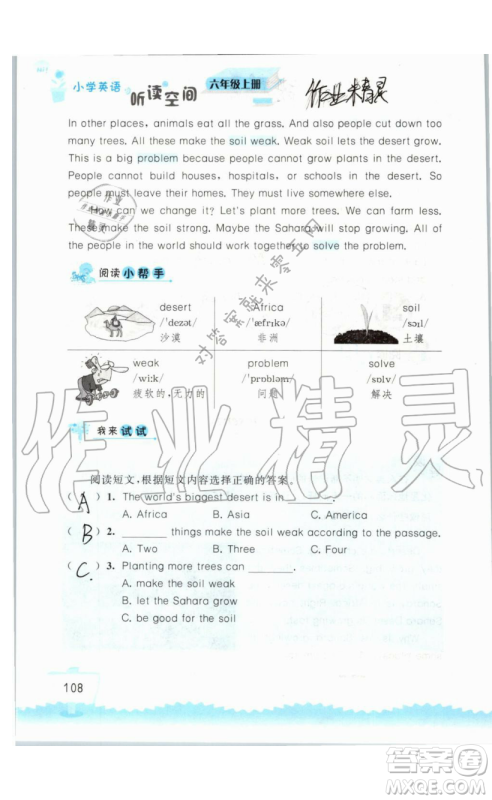 小学英语
听读空间
六年级上册
作业精灵
In other places, animals eat all the grass. And people also cut down
many trees. All these make the soil weak. Weak soil lets the desert grow.
This is a big problem because people cannot grow plants in the desert.
People cannot build houses, hospitals, or schools in the desert. So
people must leave their homes. They must live somewhere else.
How can we change it? Let's plant more trees. We can farm less.
These make the soil strong. Maybe the Sahara will stop growing. All of
the people in the world should work together to solve the problem.
阅读小帮手
desert
/ˈdezət/
沙漠
Africa
/ˈæfrɪkə/
非洲
soil
/sɔɪl/
土壤
weak
/wiːk/
疲软的,无力的
problem
/ˈprɒbləm/
问题
solve
/sɒlv/
解决
我来试试
阅读短文,根据短文内容选择正确的答案。
( A ) 1. The world's biggest desert is in ______.
A. Africa B. Asia C. America
( B ) 2. ______ things make the soil weak according to the passage.
A. Two B. Three C. Four
( C ) 3. Planting more trees can ______.
A. make the soil weak
B. let the Sahara grow
C. be good for the soil
108
作业精灵
对答案就来零五网
答案圈
MXQE.COM